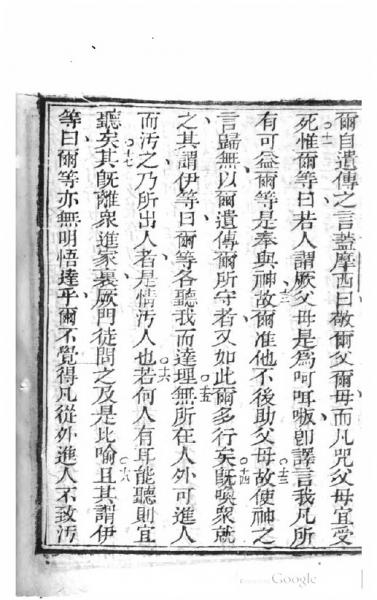 爾自遺傳之言蓋摩西曰敬爾父爾母而凡咒父母宜受
死惟爾等曰若人謂厥父母是為呵咡吸卽譯言我凡所
有可益爾等是奉與神故爾准他不後助父母故使神之
言歸無以爾遺傳爾所守者又如此爾多行矣旣喚眾就
之其謂伊等曰爾等各聽我而達理無所在人外可進人
而汚之乃所出人者是情汚人也若何人有耳能聽則宜
聽矣其旣離眾進家裏厥門徒問之及是比喻且其謂伊
等曰爾等亦無明悟達乎爾不覺得凡從外進人不致汚
十一
十二
十三
十四
十五
十六
十七
十八
Google